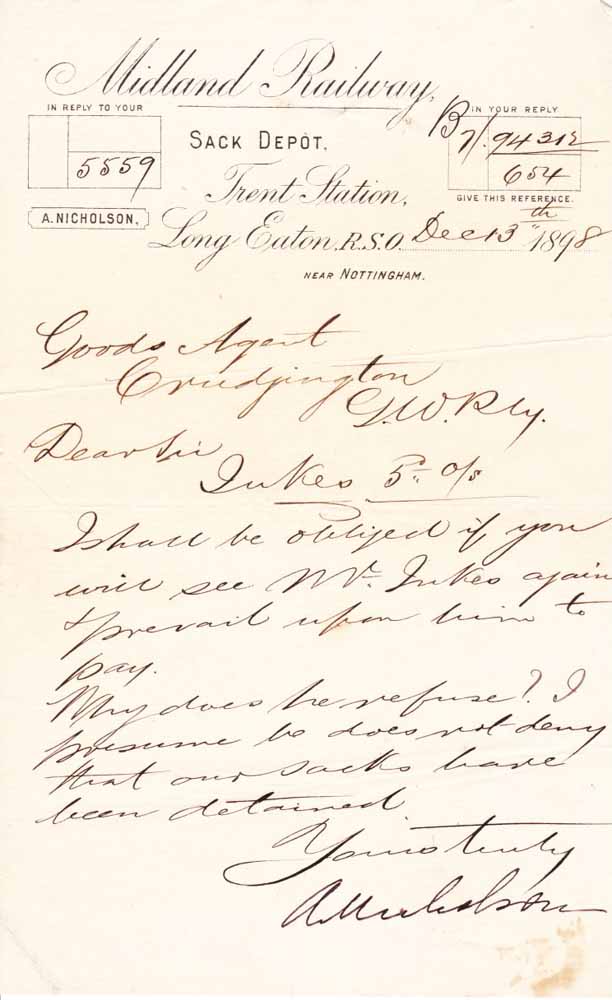 Midland Railway,
IN REPLY TO YOUR
5559
A. NICHOLSON,
SACK DEPÔT,
Trent Station,
Long Eaton, R.S.O. Dec 13th 1898
NEAR NOTTINGHAM.
IN YOUR REPLY
B 7/. 94312
654
GIVE THIS REFERENCE.
Goods Agent
Crudgington
G.W. Rly.
Dear Sir
Jukes 5/- o/s
I shall be obliged if you
will see Mr. Jukes again
& prevail upon him to
pay.
Why does he refuse? I
presume he does not deny
that our sacks have
been detained.
Yours truly
A Nicholson